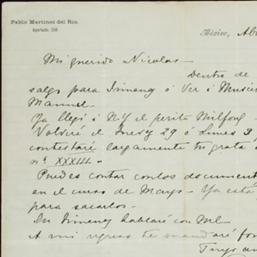 Pablo Martinez del Rio
Apartado, 238
México, Ab
Mi querido Nicolas
Dentro de
salgo para Jimenez á Ver á
Manuel.
Ya llegó á N.Y. el perito
Volveré el 29 ó Lunes 3
contestaré largamente tu grata
nº XXXIII.—
Puedes contar con los document
en el curso de Mayo - Ya está
para sacarlos.-
De Jimenez hablaré con
A mi regreso te mandaré
Tuyo